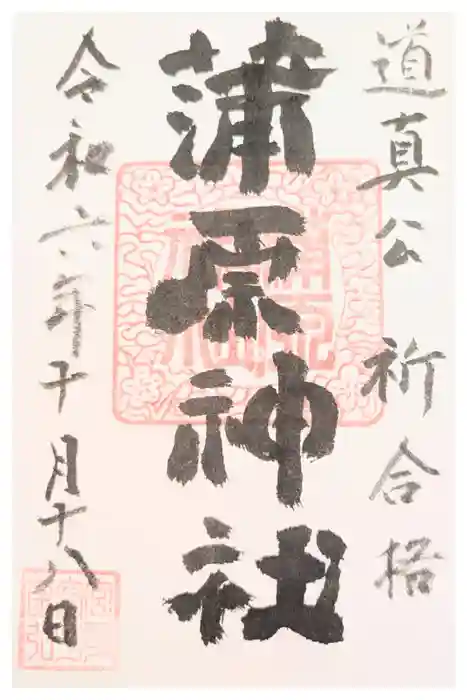 道真公 祈合格
蒲原神社
令和六年十月十八日